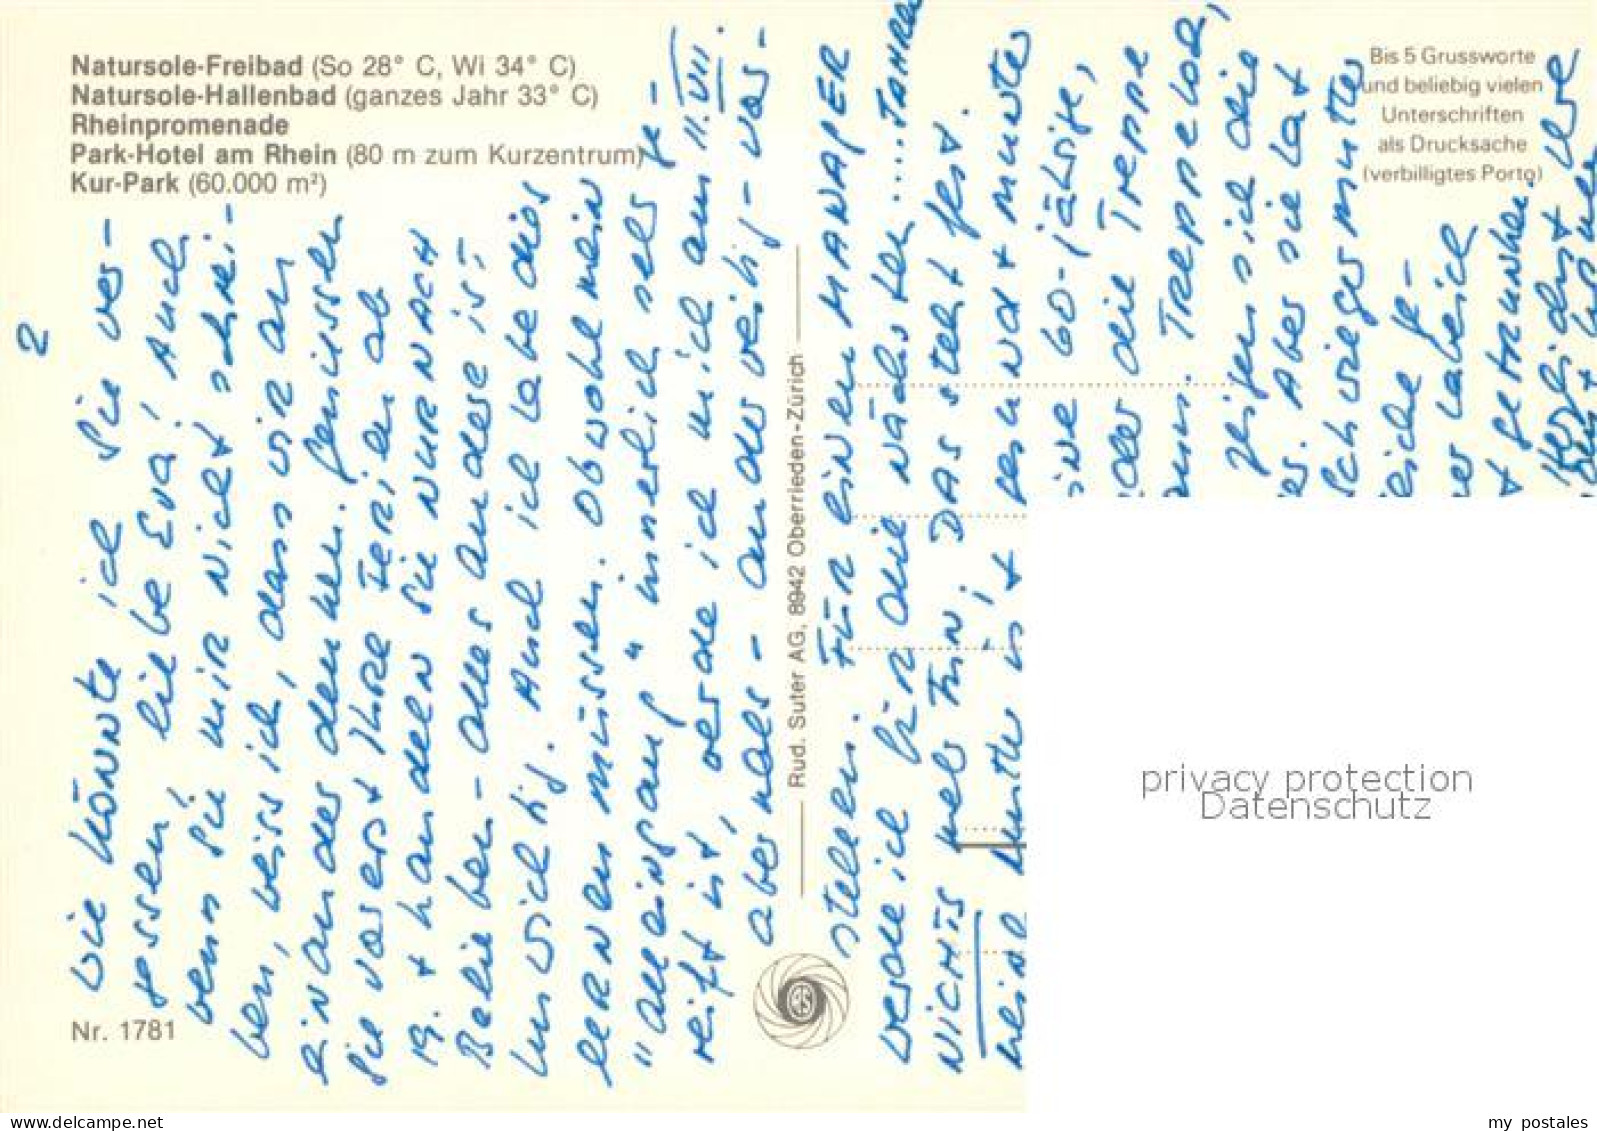 Natursole-Freibad (So 28° C, Wi 34° C)
Natursole-Hallenbad (ganzes Jahr 33° C)
Rheinpromenade
Park-Hotel am Rhein (80 m zum Kurzentrum)
Kur-Park (60.000 m²)
Bis 5 Grussworte
und beliebig vielen
Unterschriften
als Drucksache
(verbilligtes Porto)
2
Wie könnte ich Sie ver-
gessen, liebe Eva! Auch
wenn Sie mir nicht schrei-
ben, weiss ich, dass wir an
einander denken. Geniessen
Sie vorerst Ihre Ferien ab
19. + handeln Sie nur nach
Belieben - alles andere ist
unwichtig. Auch ich habe dies
lernen müssen. Obwohl mein
"Alleingang" innerlich sehr ge-
reift ist, werde ich mich am 11. VIII.
abermals - anderweitig - vor-
stellen. Für einen MANAGER
werde ich für die nächsten .... Jahre
nichts mehr tun, das steht fest.
meine Mutter ist gesund + musste
eine 60-jährige,
oder die Treppe
Treppe
sich die
Aber sie hat
Schwiegermutter
habe ich
+ getrunken.
Herzlichst Ihre
Rud. Suter AG, 8942 Oberrieden-Zürich
Nr. 1781
privacy protection
Datenschutz
delcampe.net
my_postales